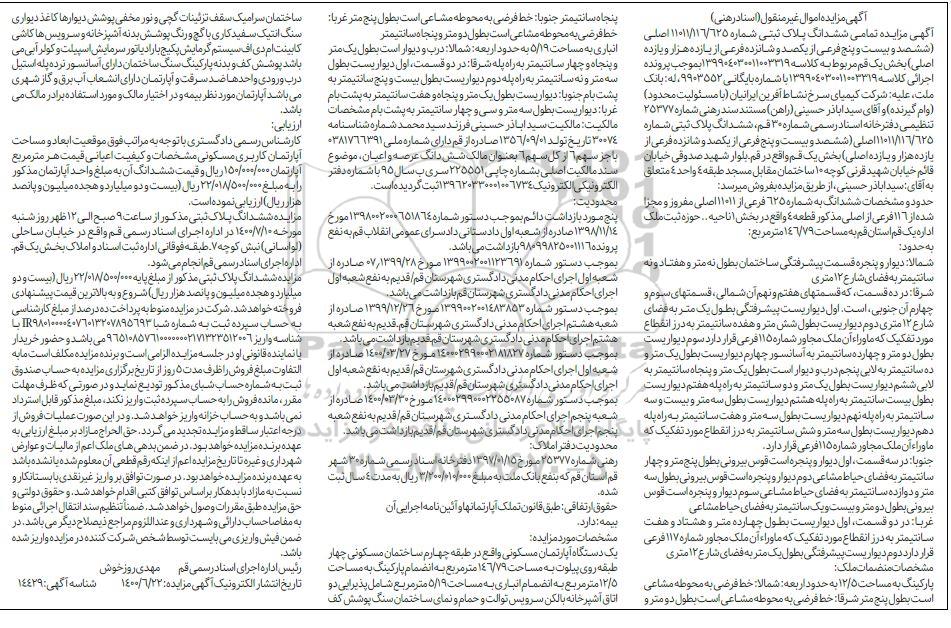 آگهی مزایده اموال غیر منقول (اسناد رهنی)
آگهی مزایده تمامی ششدانگ پلاک ثبتی شماره ۱۱۰۱۱/۱۱۶/۶۲۵ اصلی
(ششصد و بیست و پنج فرعی از یکصد و شانزده فرعی از یازده هزار و یازده
اصلی) بخش یک قم مربوط به کلاسه ۱۳۹۹۰۴۰۳۰۰۱۱۰۰۳۳۱۹ بموجب پرونده
اجرائی کلاسه ۱۳۹۹۰۴۰۳۰۰۱۱۰۰۳۳۱۹ با شماره بایگانی ۹۹۰۳۵۵۲، له: بانک
ملت، علیه: شرکت کیمیای سرخ نشاط آفرین ایرانیان (با مسئولیت محدود)
(وام گیرنده) و آقای سید اباذر حسینی (راهن) مستند سند رهنی شماره ۲۵۳۷۷
تنظیمی دفترخانه اسناد رسمی شماره ۳۰ قم، ششدانگ پلاک ثبتی شماره
۱۱۰۱۱/۱۱۶/۶۲۵ اصلی (ششصد و بیست و پنج فرعی از یکصد و شانزده فرعی از
یازده هزار و یازده اصلی) بخش یک قم واقع در قم، بلوار شهید صدوقی خیابان
قائم خیابان شهید قرنی کوچه ۱۰ ساختمان مقابل مسجد طبقه ۴ واحد ۴ متعلق
به آقای: سید اباذر حسینی، از طریق مزایده بفروش میرسد:
حدود و مشخصات ششدانگ به شماره ۶۲۵ فرعی از ۱۱۰۱۱ اصلی مفروز و مجزا
شده از ۱۱۶ فرعی از اصلی مذکور قطعه ۴ واقع در بخش ۱ ناحیه .. حوزه ثبت ملک
اداره یک قم استان قم به مساحت ۱۴۶/۷۹ مترمربع:
به حدود:
شمالا: دیوار و پنجره قسمت پیشرفتگی ساختمان بطول نه متر و هفتاد و نه
سانتیمتر به فضای شارع ۱۲ متری
شرقا: در ده قسمت، که قسمتهای هفتم و نهم آن شمالی، قسمتهای سوم و
چهارم آن جنوبی، است. اول دیواریست پیشرفتگی بطول یک متر به فضای
شارع ۱۲ متری دوم دیواریست بطول شش متر و هفده سانتیمتر به درز انقطاع
مورد تفکیک که ماوراء آن ملک مجاور شماره ۱۱۵ فرعی قرار دارد سوم دیواریست
بطول دو متر و چهارده سانتیمتر به آسانسور چهارم دیواریست بطول یک متر و
ده سانتیمتر به لابی پنجم درب و دیوار است بطول یک متر و پنجاه سانتیمتر به
لابی ششم دیواریست بطول یک متر و دو سانتیمتر به راه پله هفتم دیواریست
بطول بیست سانتیمتر به راه پله هشتم دیواریست بطول سه متر و بیست و سه
سانتیمتر به راه پله نهم دیواریست بطول سه متر و هفت سانتیمتر به راه پله
دهم دیواریست بطول سه متر و شش سانتیمتر به درز انقطاع مورد تفکیک که
ماوراء آن ملک مجاور شماره ۱۱۵ فرعی قرار دارد.
جنوبا: در سه قسمت، اول دیوار و پنجره است قوس بیرونی بطول پنج متر و چهار
سانتیمتر به فضای حیاط مشاعی دوم دیوار و پنجره است قوس بیرونی بطول سه
متر و دوازده سانتیمتر به فضای حیاط مشاعی سوم دیوار و پنجره است قوس
بیرونی بطول دو متر و بیست و یک سانتیمتر به فضای حیاط مشاعی
غربا: در دو قسمت، اول دیواریست بطول چهارده متر و هشتاد و هفت
سانتیمتر به درز انقطاع مورد تفکیک که ماوراء آن ملک مجاور شماره ۱۱۷ فرعی
قرار دارد دوم دیواریست پیشرفتگی بطول یک متر به فضای شارع ۱۲ متری
مشخصات منضمات ملک:
پارکینگ به مساحت ۱۲/۵ به حدود اربعه: شمالا: خط فرضی به محوطه مشاعی
است بطول پنج متر شرقا: خط فرضی به محوطه مشاعی است بطول دو متر و
پنجاه سانتیمتر جنوبا: خط فرضی به محوطه مشاعی است بطول پنج متر غربا:
خط فرضی به محوطه مشاعی است بطول دو متر و پنجاه سانتیمتر
انباری به مساحت ۵/۱۹ به حدود اربعه: شمالا: درب و دیوار است بطول یک متر
و پنجاه و چهار سانتیمتر به راه پله شرقا: در دو قسمت، اول دیواریست بطول
سه متر و نه سانتیمتر به راه پله دوم دیواریست بطول بیست و پنج سانتیمتر به
پشت بام جنوبا: دیواریست بطول یک متر و پنجاه و هفت سانتیمتر به پشت بام
غربا: دیواریست بطول سه متر و سی و چهار سانتیمتر به پشت بام مشخصات
مالکیت: مالکیت سید اباذر حسینی فرزند سید محمد شماره شناسنامه
۳۰۰۷۴ تاریخ تولد ۱۳۵۶/۰۹/۰۱ صادره از قم دارای شماره ملی ۰۳۸۱۷۶۶۳۹۱
با جز سهم ۶ از کل سهم ۶ بعنوان مالک شش دانگ عرصه و اعیان، موضوع
سند مالکیت اصلی به شماره چاپی ۲۲۵۵۵۱ سری ب سال ۹۵ با شماره دفتر
الکترونیکی الکترونیک ۱۳۹۶۲۰۳۳۰۰۰۱۰۰۶۷۳۴ ثبت گردیده است.
محدودیت:
پنج مورد بازداشت دائم بموجب دستور شماره ۱۳۹۸۰۰۲۰۰۰۶۵۱۸۶۴ مورخ
۱۳۹۸/۱۱/۱۴ صادره از شعبه اول دادستانی دادسرای عمومی انقلاب قم به نفع
پرونده ۹۸۰۹۹۸۲۵۰۰۰۱۱۱۶ بازداشت می‌باشد.
بموجب دستور شماره ۱۳۹۹۰۰۲۰۰۱۱۲۳۶۹۱ مورخ ۰۷،۱۳۹۹/۲۸ صادره از
شعبه اول اجرای احکام مدنی دادگستری شهرستان قم/قدیم به نفع شعبه اول
اجرای احکام مدنی دادگستری شهرستان قم بازداشت می‌باشد.
بموجب دستور شماره ۱۳۹۹۰۰۲۰۰۱۴۸۳۸۵۳ مورخ ۱۳۹۹/۱۲/۲۶ صادره از
شعبه هشتم اجرای احکام مدنی دادگستری شهرستان قم قدیم به نفع شعبه
هشتم اجرای احکام مدنی دادگستری شهرستان قم بازداشت می‌باشد.
بموجب دستور شماره ۱۴۰۰۰۲۹۹۰۰۰۲۱۸۱۸۲۷ مورخ ۱۴۰۰/۰۳/۲۷ صادره از
شعبه اول اجرای احکام مدنی دادگستری شهرستان قم/قدیم به نفع شعبه اول
اجرای احکام مدنی دادگستری شهرستان قم/قدیم بازداشت می‌باشد.
بموجب دستور شماره ۱۴۰۰۰۲۹۹۰۰۰۲۲۵۵۰۸۷ مورخ ۱۴۰۰/۰۳/۳۰ صادره از
شعبه پنجم اجرای احکام مدنی دادگستری شهرستان قم/قدیم به نفع شعبه
پنجم اجرای احکام مدنی دادگستری شهرستان قم/قدیم بازداشت می‌باشد.
محدودیت دفتر املاک:
رهنی شماره ۲۵۳۷۷ مورخ ۱۳۹۷/۰۱/۱۵ دفترخانه اسناد رسمی شماره ۳۰ شهر
قم استان قم که بنفع بانک ملت به مبلغ ۳/۲۰۰/۰۱۰/۰۰۰ ریال به مدت ۴ سال ثبت
شده.
حقوق ارتفاقی: طبق قانون تملک آپارتمانها و آئین نامه اجرایی آن
بیمه: دارد.
مشخصات مورد مزایده:
یک دستگاه آپارتمان مسکونی واقع در طبقه چهارم ساختمان مسکونی چهار
طبقه روی پیلوت به مساحت ۱۴۶/۷۹ مترمربع به انضمام پارکینگ به مساحت
۱۲/۵ مترمربع به انضمام انباری به مساحت ۵/۱۹ مترمربع شامل پذیرایی دو
اتاق آشپزخانه بالکن سرویس توالت و حمام و نمای ساختمان سنگ پوشش کف
ساختمان سرامیک سقف تزئینات گچی و نور مخفی پوشش دیوارها کاغذ دیواری
سنگ انتیک سفیدکاری با گچ و رنگ پوشش بدنه آشپزخانه و سرویس‌ها کاشی
کابینت ام دی اف سیستم گرمایش پکیج با رادیاتور سرمایش اسپیلت و کولر آبی می
باشد پوشش کف و بدنه پارکینگ سنگ ساختمان دارای آسانسور نرده پله استیل
درب ورودی واحدها ضد سرقت و آپارتمان دارای انشعاب آب برق و گاز شهری
می باشد آپارتمان مورد نظر بیمه و در اختیار مالک و مورد استفاده برادر مالک می
باشد.
ارزیابی:
کارشناس رسمی دادگستری با توجه به مراتب فوق موقعیت ابعاد و مساحت
آپارتمان کاربری مسکونی مشخصات و کیفیت اعیانی قیمت هر مترمربع
آپارتمان ۱۵۰/۰۰۰/۰۰۰ ریال و قیمت ششدانگ آن به مبلغ واحد آپارتمان مذکور
را به مبلغ ۲۲/۰۱۸/۵۰۰/۰۰۰ ریال (بیست و دو میلیارد و هجده میلیون و پانصد
هزار ریال) ارزیابی نموده است.
مزایده ششدانگ پلاک ثبتی مذکور از ساعت ۹ صبح الی ۱۲ ظهر روز شنبه
مورخه ۱۴۰۰/۷/۱۰ در اداره اجرای اسناد رسمی قم واقع در خیابان ساحلی
(لواسانی) نبش کوچه ۷، طبقه فوقانی اداره ثبت اسناد و املاک بخش یک قم،
اداره اجرای اسناد رسمی قم انجام می‌شود.
مزایده ششدانگ پلاک ثبتی مذکور از مبلغ پایه ۲۲/۰۱۸/۵۰۰/۰۰۰ ریال (بیست و دو
میلیارد و هجده میلیون و پانصد هزار ریال) شروع و به بالاترین قیمت پیشنهادی
فروخته خواهد شد. شرکت در مزایده منوط به پرداخت ده درصد از مبلغ کارشناسی
به حساب سپرده ثبت به شماره شبا IR۹۸۰۱۰۰۰۰۴۰۷۶۰۱۳۲۰۷۸۹۵۶۹۳ با
شناسه واریز ۹۶۵۱۰۸۵۷۶۱۰۰۰۰۰۰۲۱۷۱۳۲۳۵۱۲۰۰۶ می‌باشد و حضور خریدار
یا نماینده قانونی او در جلسه مزایده الزامی است و برنده مزایده مکلف است مابه
التفاوت مبلغ فروش را ظرف مدت ۵ روز از تاریخ برگزاری مزایده به حساب صندوق
ثبت به شماره حساب شبای مذکور تودیع نماید و در صورتی که ظرف مهلت
مقرر، مانده فروش را به حساب سپرده ثبت واریز نکند، مبلغ مذکور قابل استرداد
نمی باشد و به حساب خزانه واریز خواهد شد. و در این صورت عملیات فروش از
درجه اعتبار ساقط و مزایده تجدید می گردد. حق الحراج مازاد بر مبلغ ارزیابی به
عهده برنده مزایده خواهد بود. در ضمن بدهی های ملک اعم از مالیات و عوارض
شهرداری و غیره تا تاریخ مزایده اعم از اینکه رقم قطعی آن معلوم شده یا نشده باشد
به عهده برنده مزایده خواهد بود. در صورت توافق بر واریز غیر نقدی با بستانکار و
نسبت به مازاد با بدهکار بر اساس توافق کتبی اقدام خواهد شد. و حقوق دولتی و
حق مزایده طبق مقررات وصول خواهد شد. ضمنا تنظیم سند انتقال اجرائی منوط
به مفاصا حساب دارائی و شهرداری و عنداللزوم مراجع ذیصلاح دیگر می باشد. در
ضمن فیش واریزی می بایست توسط شخص شرکت کننده در مزایده واریز شده
باشد.
رئیس اداره اجرای اسناد رسمی قم مهدی روزخوش
تاریخ انتشار الکترونیک آگهی مزایده: ۱۴۰۰/۶/۲۲ شناسه آگهی: ۱۴۴۳۹